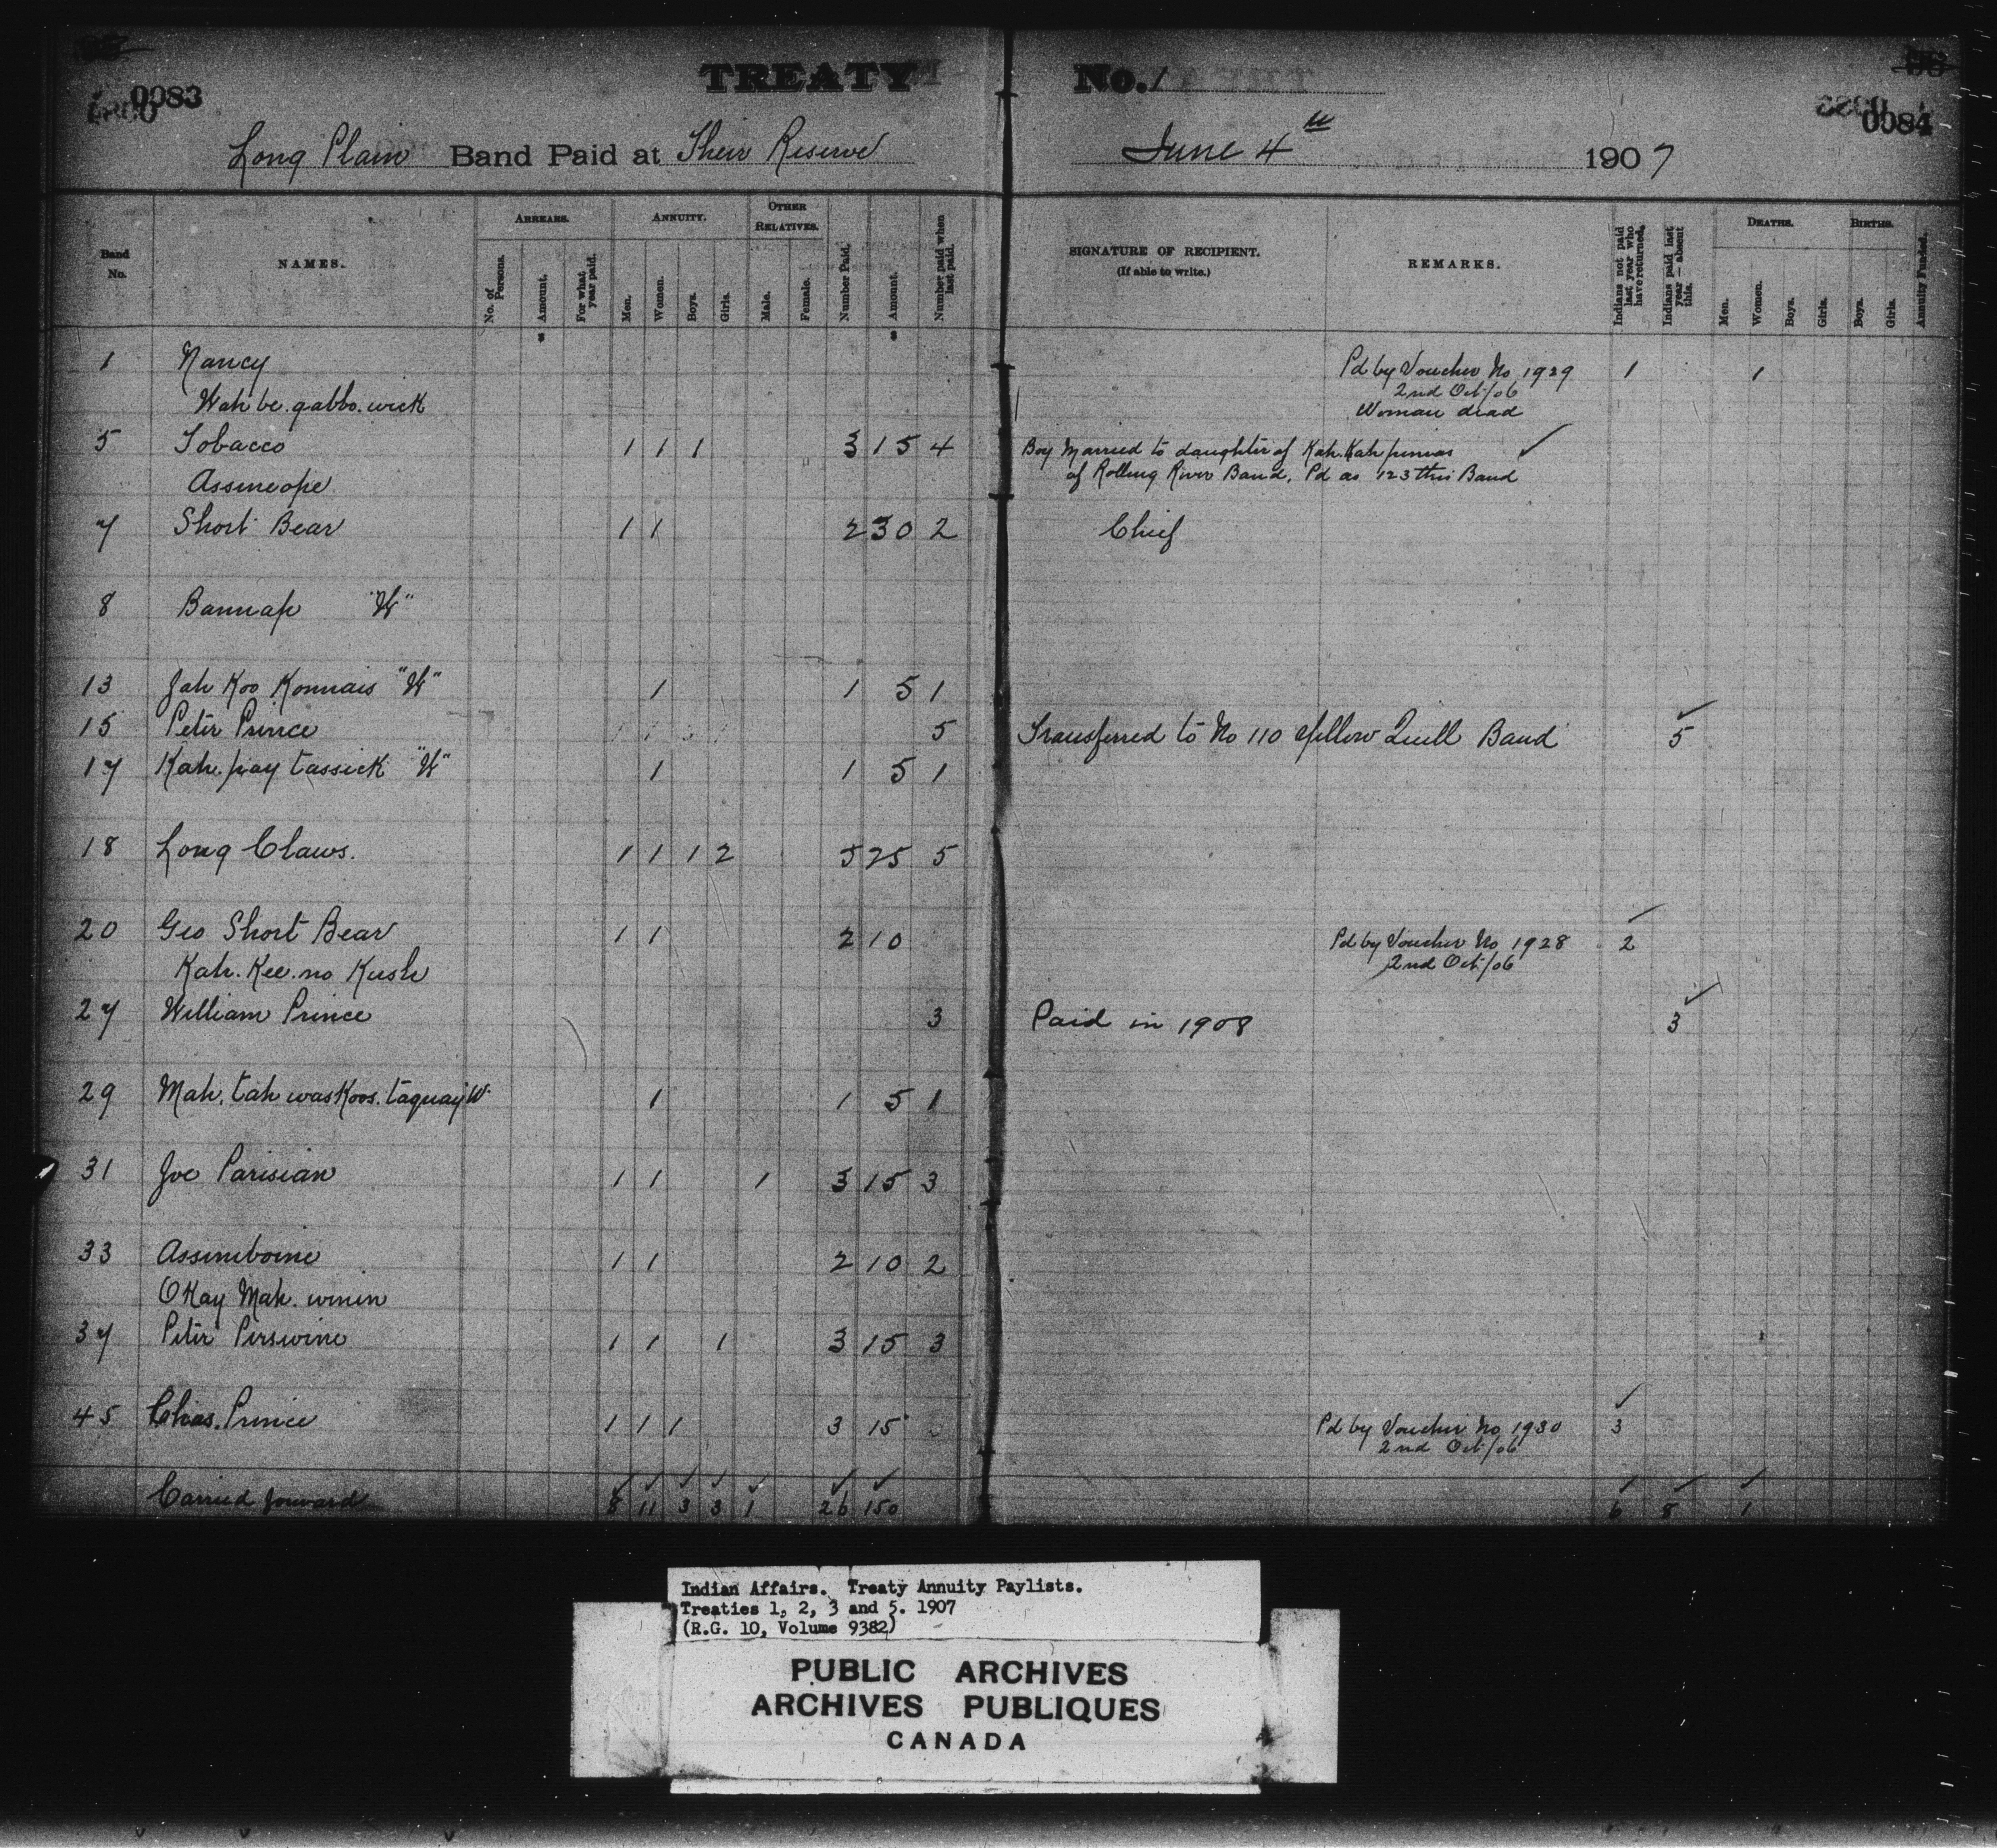 0083
TREATY No. 1
0084
Long Plain Band Paid at Their Reserve June 4th 1907
Band No. NAMES. ARREARS. No. of Persons. Amount. For what year paid. ANNUITY. Men. Women. Boys. Girls. OTHER RELATIVES. Male. Female. Number Paid. Amount. Number paid when last paid. SIGNATURE OF RECIPIENT. (If able to write.) REMARKS. Indians not paid last year who have returned. Indians paid last year — absent this. DEATHS. Men. Women. Boys. Girls. BIRTHS. Boys. Girls. Annuity Funded.
$ $
1 Nancy Pd by Voucher No 1929 1 1
2nd Oct/06
Wah be. gabbo. wick Woman dead
5 Tobacco 1 1 1 3 15 4 Boy Married to daughter of Kah. Kah
Assineope of Rolling River Band. Pd as 123 this Band
7 Short Bear 1 1 2 30 2 Chief
8 Bannap "W"
13 Jah Koo Konnais "W" 1 1 5 1
15 Peter Prince 5 Transferred to No 110 Yellow Quill Band 5
17 Kah. pay tassick "W" 1 1 5 1
18 Long Claws. 1 1 1 2 5 25 5
20 Geo Short Bear 1 1 2 10 Pd by Voucher No 1928 2
Kah. Kee. no Kush 2nd Oct/06
27 William Prince 3 Paid in 1908 3
29 Mah. tah was Koos. taquay W. 1 1 5 1
31 Joe Parisian 1 1 1 3 15 3
33 Assiniboine 1 1 2 10 2
OKay Mah. winin
37 Peter Perswine 1 1 1 3 15 3
45 Chas. Prince 1 1 1 3 15 Pd by Voucher No 1930 3
2nd Oct/06
Carried forward 8 11 3 3 1 26 150 6 8 1
Indian Affairs. Treaty Annuity Paylists.
Treaties 1, 2, 3 and 5. 1907
(R.G. 10, Volume 9382)
PUBLIC ARCHIVES
ARCHIVES PUBLIQUES
CANADA